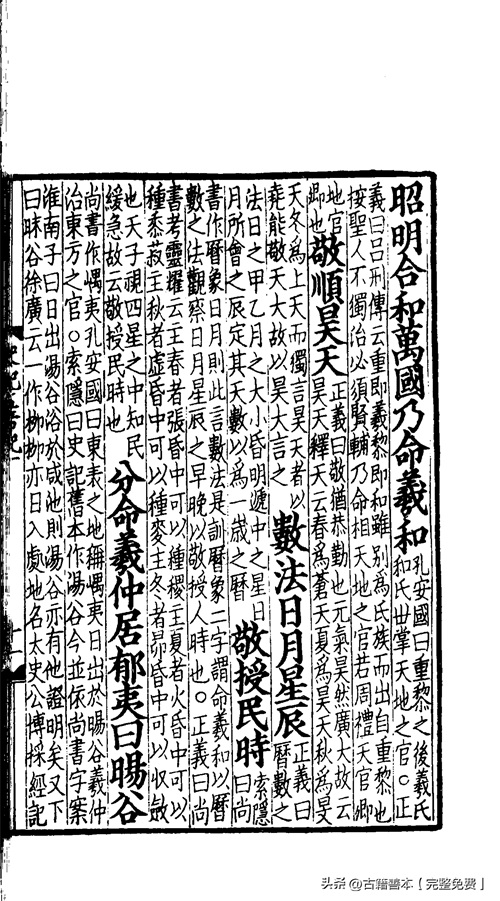 昭明合和萬國乃命羲和
孔安國曰重黎之後羲氏
和氏世掌天地之官○正
義曰吕刑傳云重即羲黎即和雖別為氏族而出自重黎也
按聖人不獨治必須賢輔乃命相天地之官若周禮天官卿
地官
卿也
敬順昊天
正義曰敬猶恭勤也元氣昊然廣大故云
昊天釋天云春為蒼天夏為昊天秋為旻
天冬為上天而獨言昊天者以
堯能敬天大故以昊大言之
數法日月星辰
正義曰
曆數之
法日之甲乙月之大小昏明遞中之星日
月所會之辰定其天數以為一歲之曆
敬授民時
索隱
曰尚
書作曆象日月則此言數法是訓曆象二字謂命羲和以曆
數之法觀察日月星辰之早晚以敬授人時也○正義曰尚
書考靈耀云主春者張昏中可以種稷主夏者火昏中可以
種黍菽主秋者虛昏中可以種麥主冬者昴昏中可以收斂
也天子視四星之中知民
緩急故云敬授民時也
分命羲仲居郁夷曰暘谷
尚書作嵎夷孔安國曰東表之地稱嵎夷日出於暘谷羲仲
治東方之官○索隱曰史記舊本作湯谷今並依尚書字案
淮南子曰日出湯谷浴於咸池則湯谷亦有他證明矣又下
曰昧谷徐廣云一作柳柳亦日入處地名太史公博採經記
十一
头条 @古籍善本【完整免费】